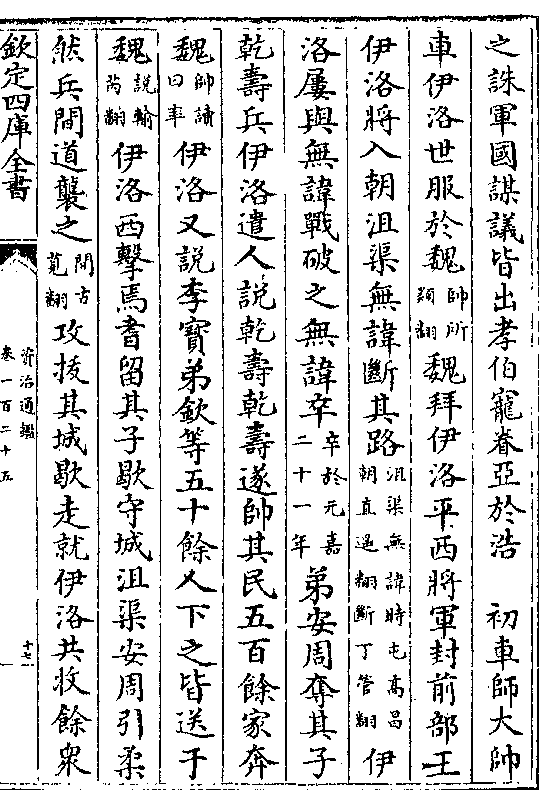 之誅軍國謀議皆出孝伯寵眷亞於浩　初車師大帥
車伊洛世服於魏帥所類翻魏拜伊洛平西將軍封前部王
伊洛將入朝沮渠無諱斷其路沮渠無諱時屯髙昌朝直遥翻斷丁管翻伊
洛屢與無諱戰破之無諱卒卒於元嘉二十一年弟安周奪其子
乾壽兵伊洛遣人說乾壽乾壽遂帥其民五百餘家奔
魏帥讀曰率伊洛又說李寶弟欽等五十餘人下之皆送于
魏說輸芮翻伊洛西擊焉耆留其子歇守城沮渠安周引柔
然兵間道襲之間古莧翻攻拔其城歇走就伊洛共收餘衆
欽定四庫全書
資治通鑑
卷一百二十五